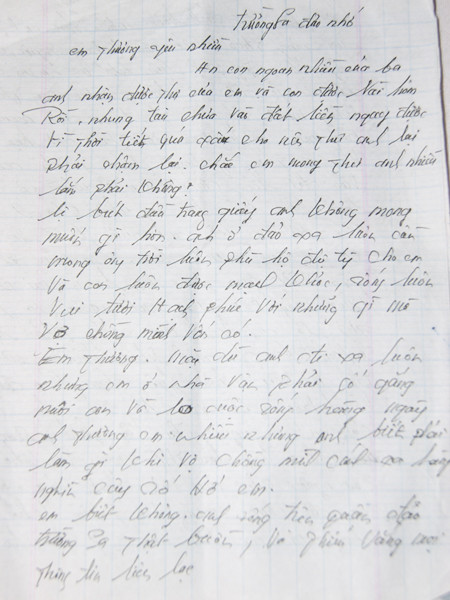 Trường Sa đảo nhớ
em thương yêu nhiều
An con ngoan nhiều của ba
anh nhận được thư của em và con được vài hôm
Rồi, nhưng tàu chưa vào đất liền ngay được
Vì thời tiết quá xấu cho nên thư anh lại
phải chậm lại. chắc em mong thư anh nhiều
lắm phải không?
anh không mong
muốn gì hơn. anh ở đảo xa luôn cầu
mong ông trời luôn phù hộ cho em
Và con luôn được mạnh khỏe, sống luôn
Vui tươi Hạnh phúc Với những gì mà
Vợ chồng mình Vốn có.
Em thương. mặc dù anh đi xa luôn
nhưng em ở nhà Vẫn phải cố gắng
nuôi con Và lo cuộc sống hàng ngày
anh thương em nhiều nhưng anh biết phải
làm gì khi vợ chồng mình cách xa hàng
nghìn cây số Hở em.
em biết không. anh sống trên quần đảo
trường Sa thật buồn, Và thiếu Vắng mọi
thông tin liên lạc